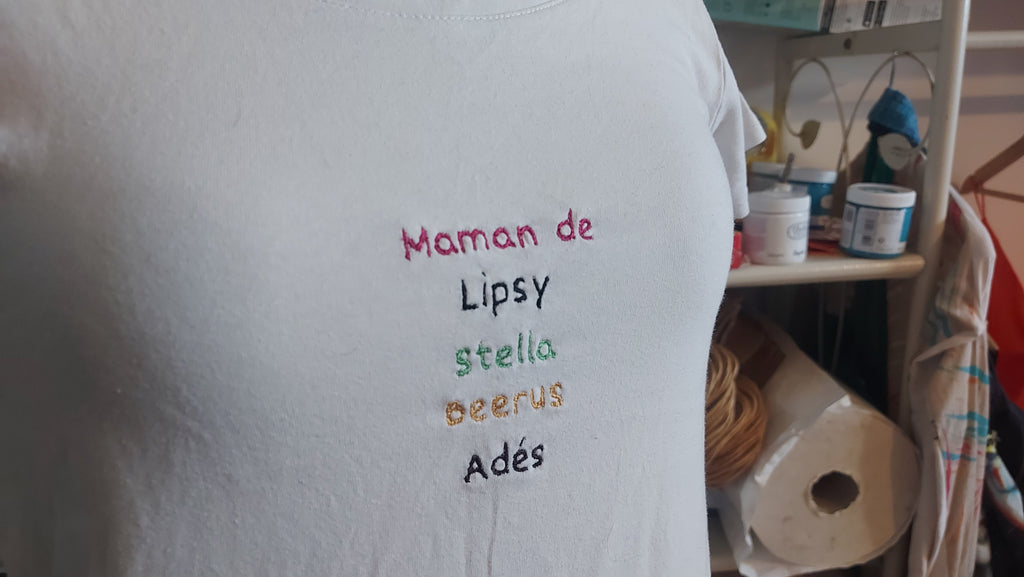 Maman de
Lipsy
stella
oeerus
Adés